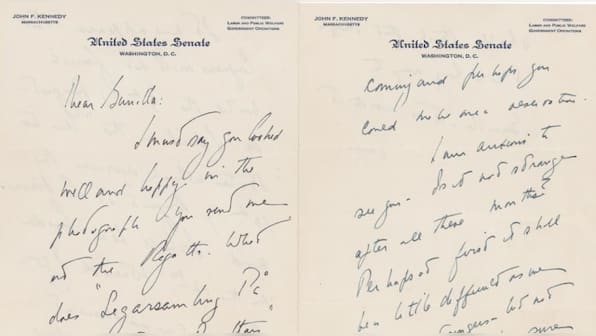 JOHN F. KENNEDY
MASSACHUSETTS
COMMITTEES:
LABOR AND PUBLIC WELFARE
GOVERNMENT OPERATIONS
United States Senate
WASHINGTON, D. C.
Dear Gunilla:
I must say you looked
well and happy in the
photograph you send me
at the Regatta. What
does "Segarsamling På
JOHN F. KENNEDY
MASSACHUSETTS
COMMITTEES:
LABOR AND PUBLIC WELFARE
GOVERNMENT OPERATIONS
United States Senate
WASHINGTON, D. C.
coming and perhaps you
could make me a reservation.
I am anxious to
see you - Is it not strange
after all these months?
Perhaps at first it shall
be a little difficult as we
but not